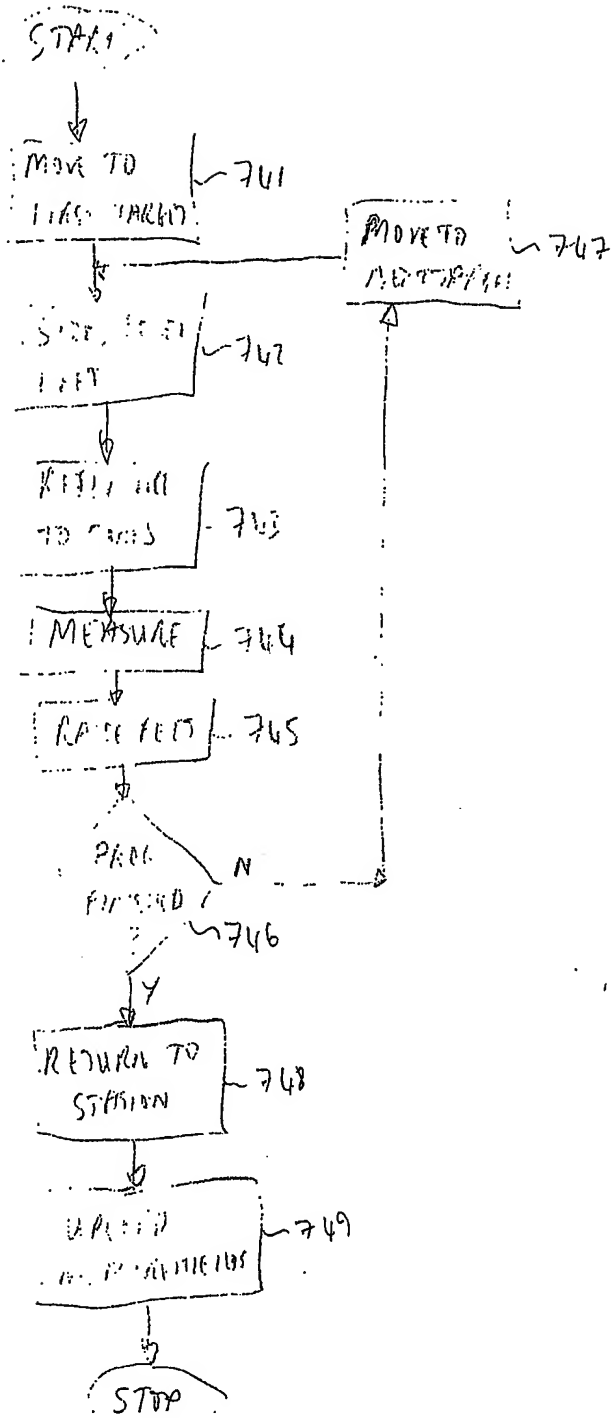 START
MOVE TO
FIRST TARGET
741
MOVE TO
747
742
743
TO
MEASURE
744
RAISE FEET
745
PROG
FINISHED
N
746
Y
RETURN TO
STATION
748
UPLOAD
MEASUREMENTS
749
STOP